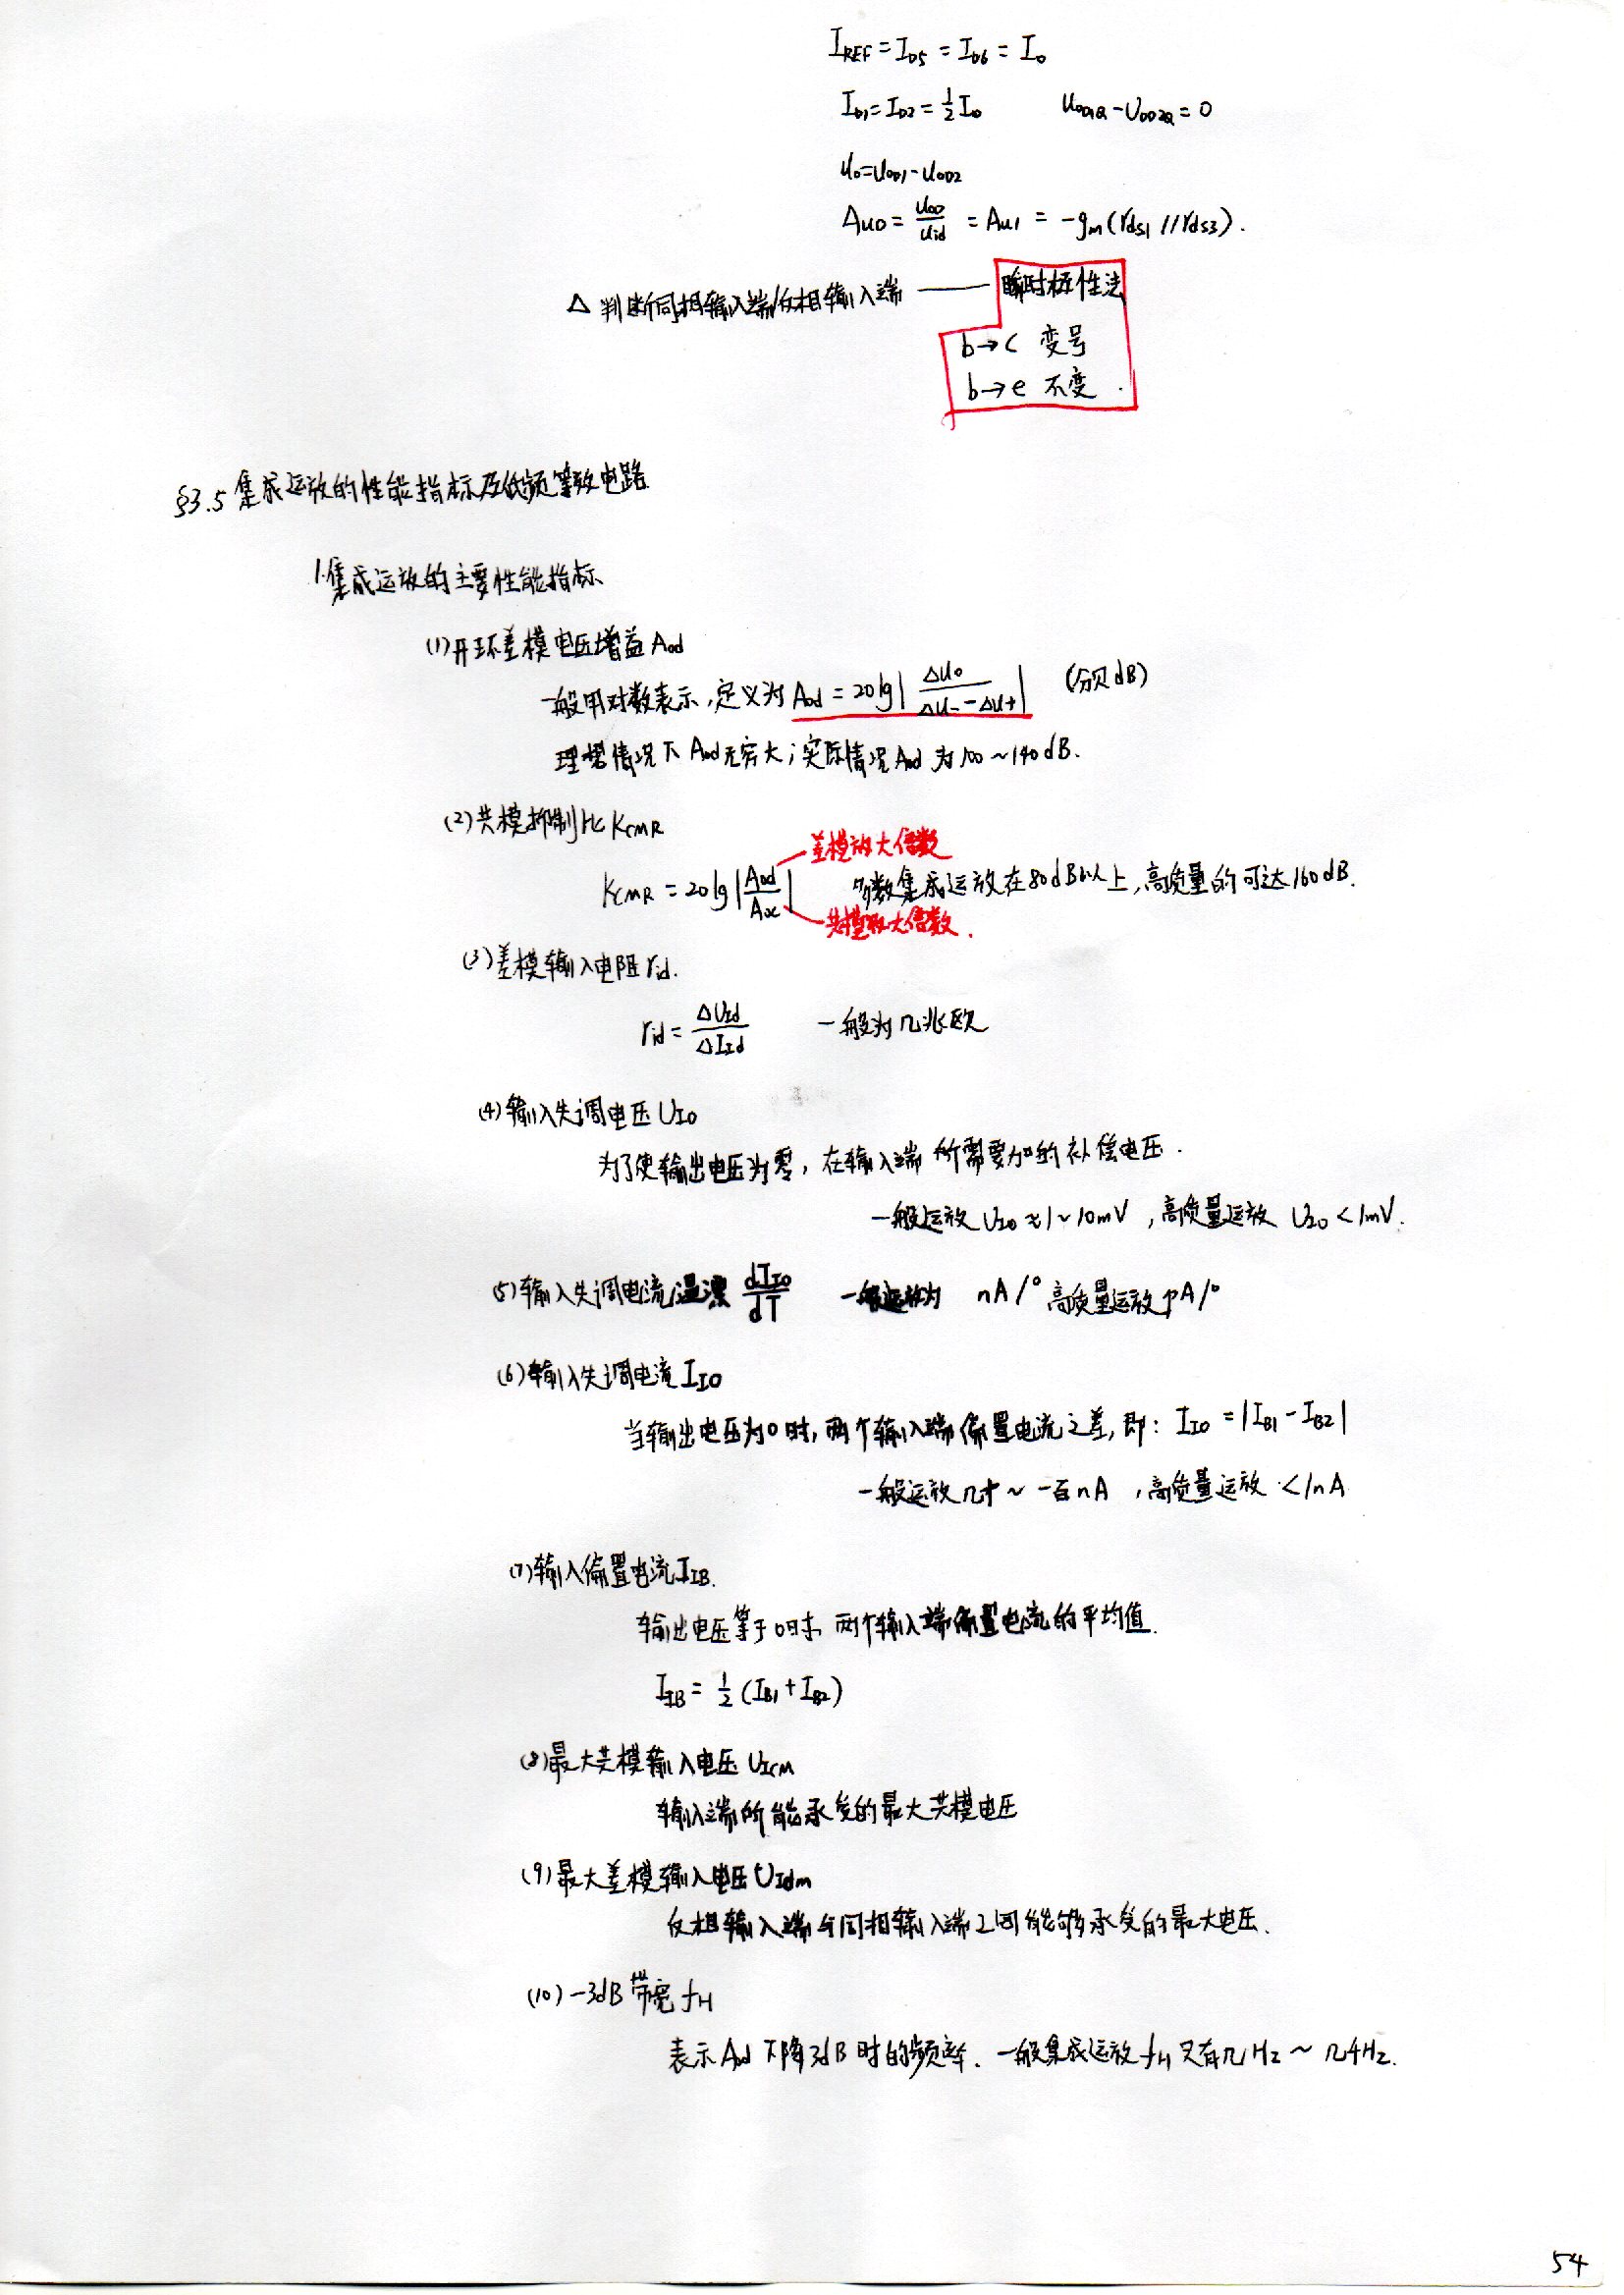 I_REF = I_D5 = I_D6 = I_0
I_D1 = I_D2 = 1/2 I_0 U_OD1Q - U_OD2Q = 0
u_o = u_OD1 - u_OD2
A_uD = u_OD/u_id = A_u1 = -g_m (r_ds1 // r_ds3).
△ 判断同相输入端/反相输入端 —— 瞬时极性法
b→c 变号
b→e 不变.
§3.5 集成运放的性能指标及低频等效电路
1.集成运放的主要性能指标
(1)开环差模电压增益 Aod
一般用对数表示,定义为 Aod = 20lg|ΔUo/(ΔU_- - ΔU_+)| (分贝dB)
理想情况下 Aod无穷大;实际情况 Aod 为100~140dB.
(2)共模抑制比 K_CMR
差模放大倍数
K_CMR = 20lg|Aod/Aoc| 多数集成运放在80dB以上,高质量的可达160dB.
共模放大倍数.
(3)差模输入电阻 rid.
rid = ΔU_Id/ΔI_Id 一般为几兆欧
(4)输入失调电压 U_IO
为了使输出电压为零,在输入端所需要加的补偿电压.
一般运放 U_IO ≈ 1~10mV,高质量运放 U_IO < 1mV.
(5)输入失调电流温漂 dI_IO/dT 一般运放为 nA/° 高质量运放pA/°
(6)输入失调电流 I_IO
当输出电压为0时,两个输入端偏置电流之差,即: I_IO = |I_B1 - I_B2|
一般运放几十~一百nA,高质量运放 <1nA
(7)输入偏置电流 I_IB.
输出电压等于0时 两个输入端偏置电流的平均值.
I_IB = 1/2 (I_B1 + I_B2)
(8)最大共模输入电压 U_Icm
输入端所能承受的最大共模电压
(9)最大差模输入电压 U_Idm
反相输入端与同相输入端之间能够承受的最大电压.
(10) -3dB 带宽 f_H
表示 Aod 下降3dB时的频率. 一般集成运放 f_H 只有几Hz~几kHz.
54